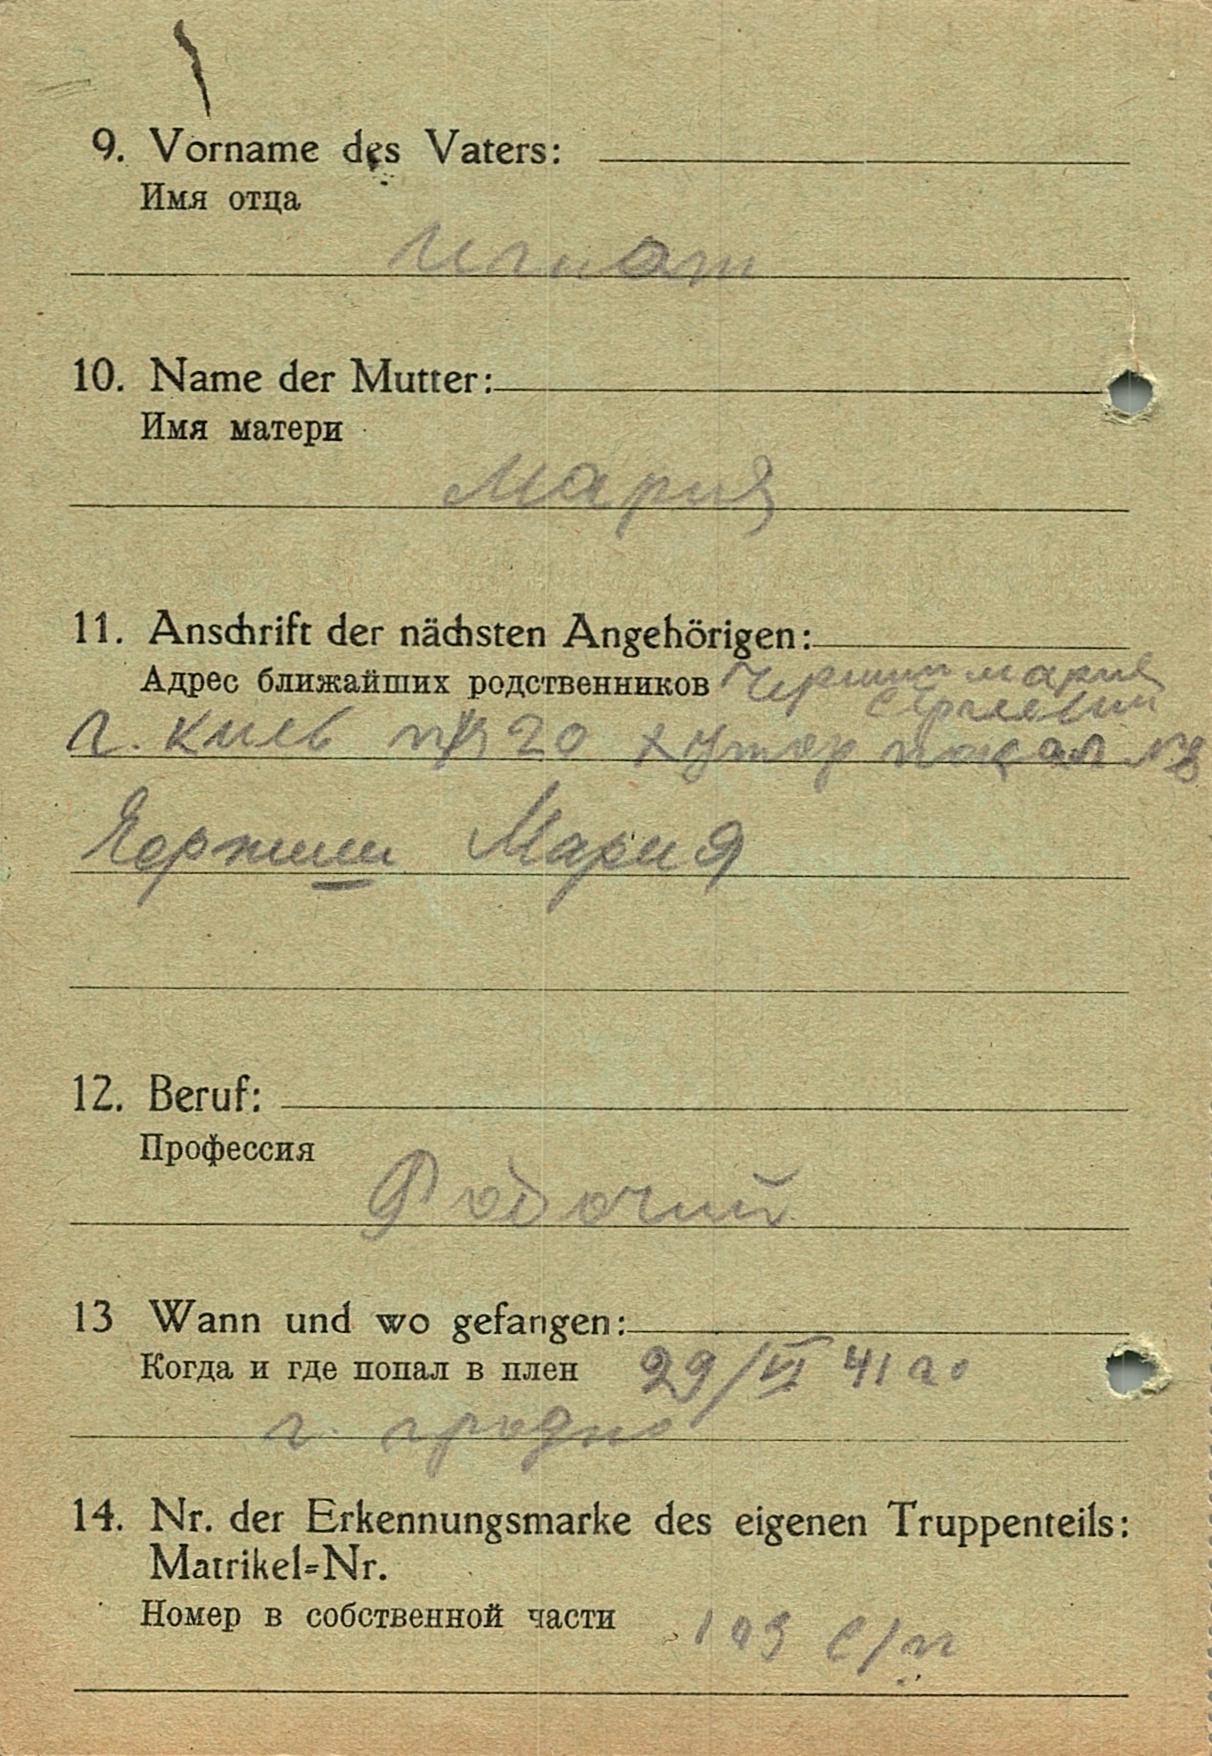 9. Vorname des Vaters:
Имя отца
Игнат
10. Name der Mutter:
Имя матери
Мария
11. Anschrift der nächsten Angehörigen:
Адрес ближайших родственников Мария
г. Киев 20 хутор
Мария
12. Beruf:
Профессия
Рабочий
13 Wann und wo gefangen:
Когда и где попал в плен 29/VI 41 го
г. Гродно
14. Nr. der Erkennungsmarke des eigenen Truppenteils:
Matrikel=Nr.
Номер в собственной части
с/п